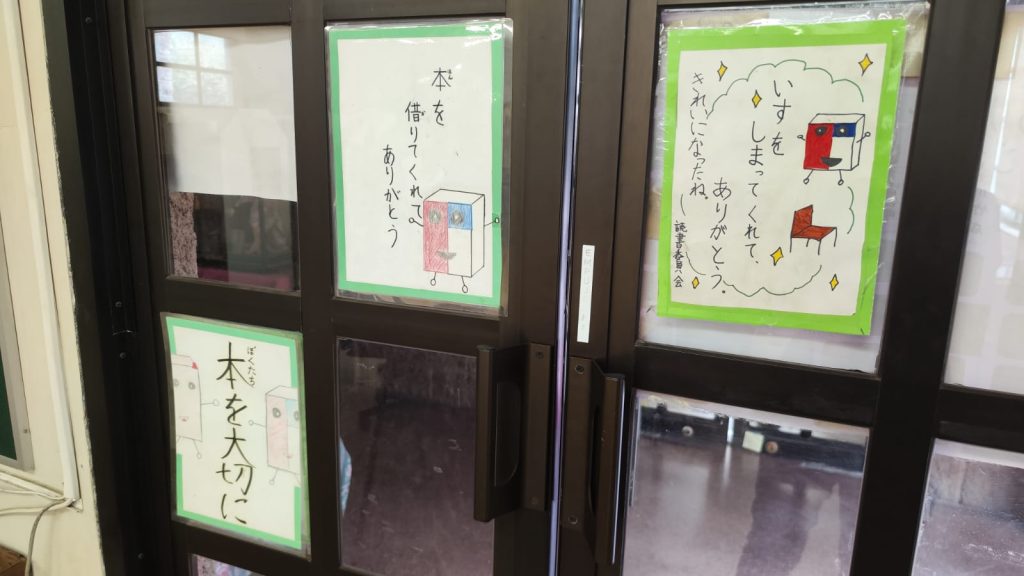 本を
借りてくれて
ありがとう
いすを
しまってくれて、
ありがとう。
きれいになったね。
読書委員会
本を大切に